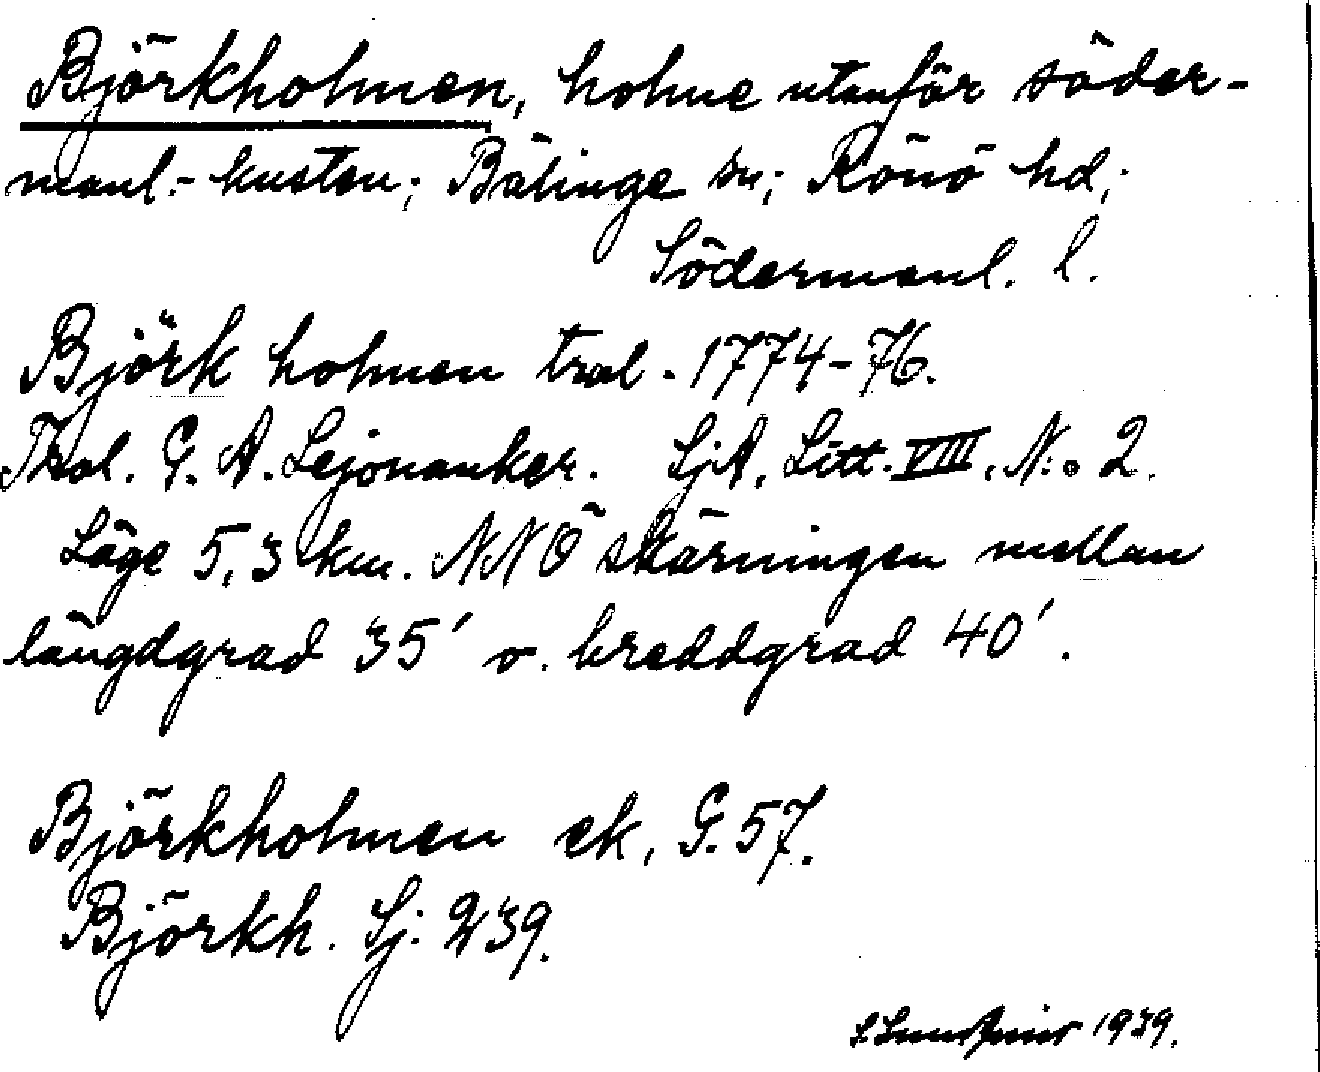 Björkholmen, holme utanför söder-
manl.- kusten; Bälinge sn; Rönö hd;
Södermanl. l.
Björk holmen tral. 1774-76.
Tral. G. A. Lejonanker. SjA, Litt. VIII, N:o 2.
Läge 5,3 km. NNÖ skärningen mellan
längdgrad 35' o. breddgrad 40'.
Björkholmen ek, G. 57.
Björkh. Sj: 239.
1939.